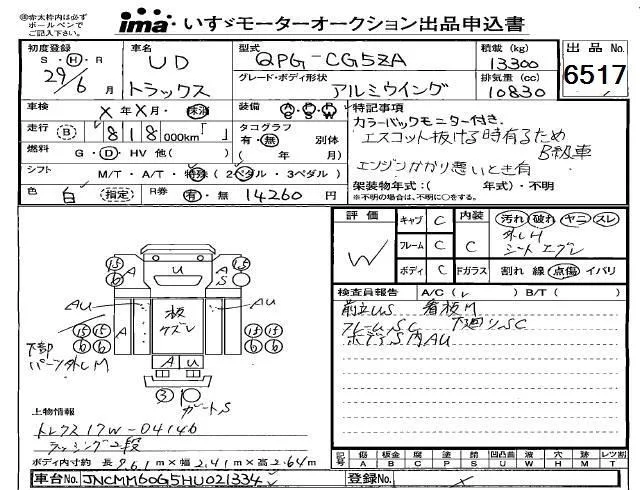 ㊟赤太枠内は必ず
ボールペンで
ご記入下さい。
ima いすゞモーターオークション出品申込書
初度登録 S・H・R 29/6 月
車名 UD トラックス
型式 QPG-CG5ZA
グレード・ボディ形状 アルミウイング
積載 (kg) 13300
排気量 (cc) 10830
出品No. 6517
車検 X年X月・抹消
装備
特記事項
カラーバックモニター付き.
エスコット抜ける時有るため
B級車
エンジンかかり悪いとき有
走行 B 818,000km「 」
タコグラフ 有・無 別体
( 年 月)
燃料 G・D・HV 他( )
シフト M/T・A/T・特殊 (2ペダル・3ペダル)
架装物年式:( 年式)・不明
※不明の場合は、不明に○をする。
色 白 (指定)
R券 有・無 14260 円
評価 W
キャブ C
内装 C
汚れ 破れ ヤニ スレ
外しH
シートエグレ
フレーム C
ボディ C
Fガラス 割れ 線 点傷 イバリ
検査員報告 A/C(レ ) B/T( )
前立US 看板M
フレームSC 下廻りSC
ボデーS内AU
15 6 U A S 15 6
AU 板 ケズレ AU
15 15 A A 15 15
6 6 6 6
下部
パーツ外しM
A U
3
ゲートS
上物情報
トレクス17W-04146
ラッシング2段
ボディ内寸約 長9.61m×幅2.41m×高2.64m
記号 傷 A 板金 B 腐 C 塗 P 錆 S 凹凸曲 U 波 W 穴 H 跡 M レツ割 T
車台No. JNCMM60G5HU021334
登録No.